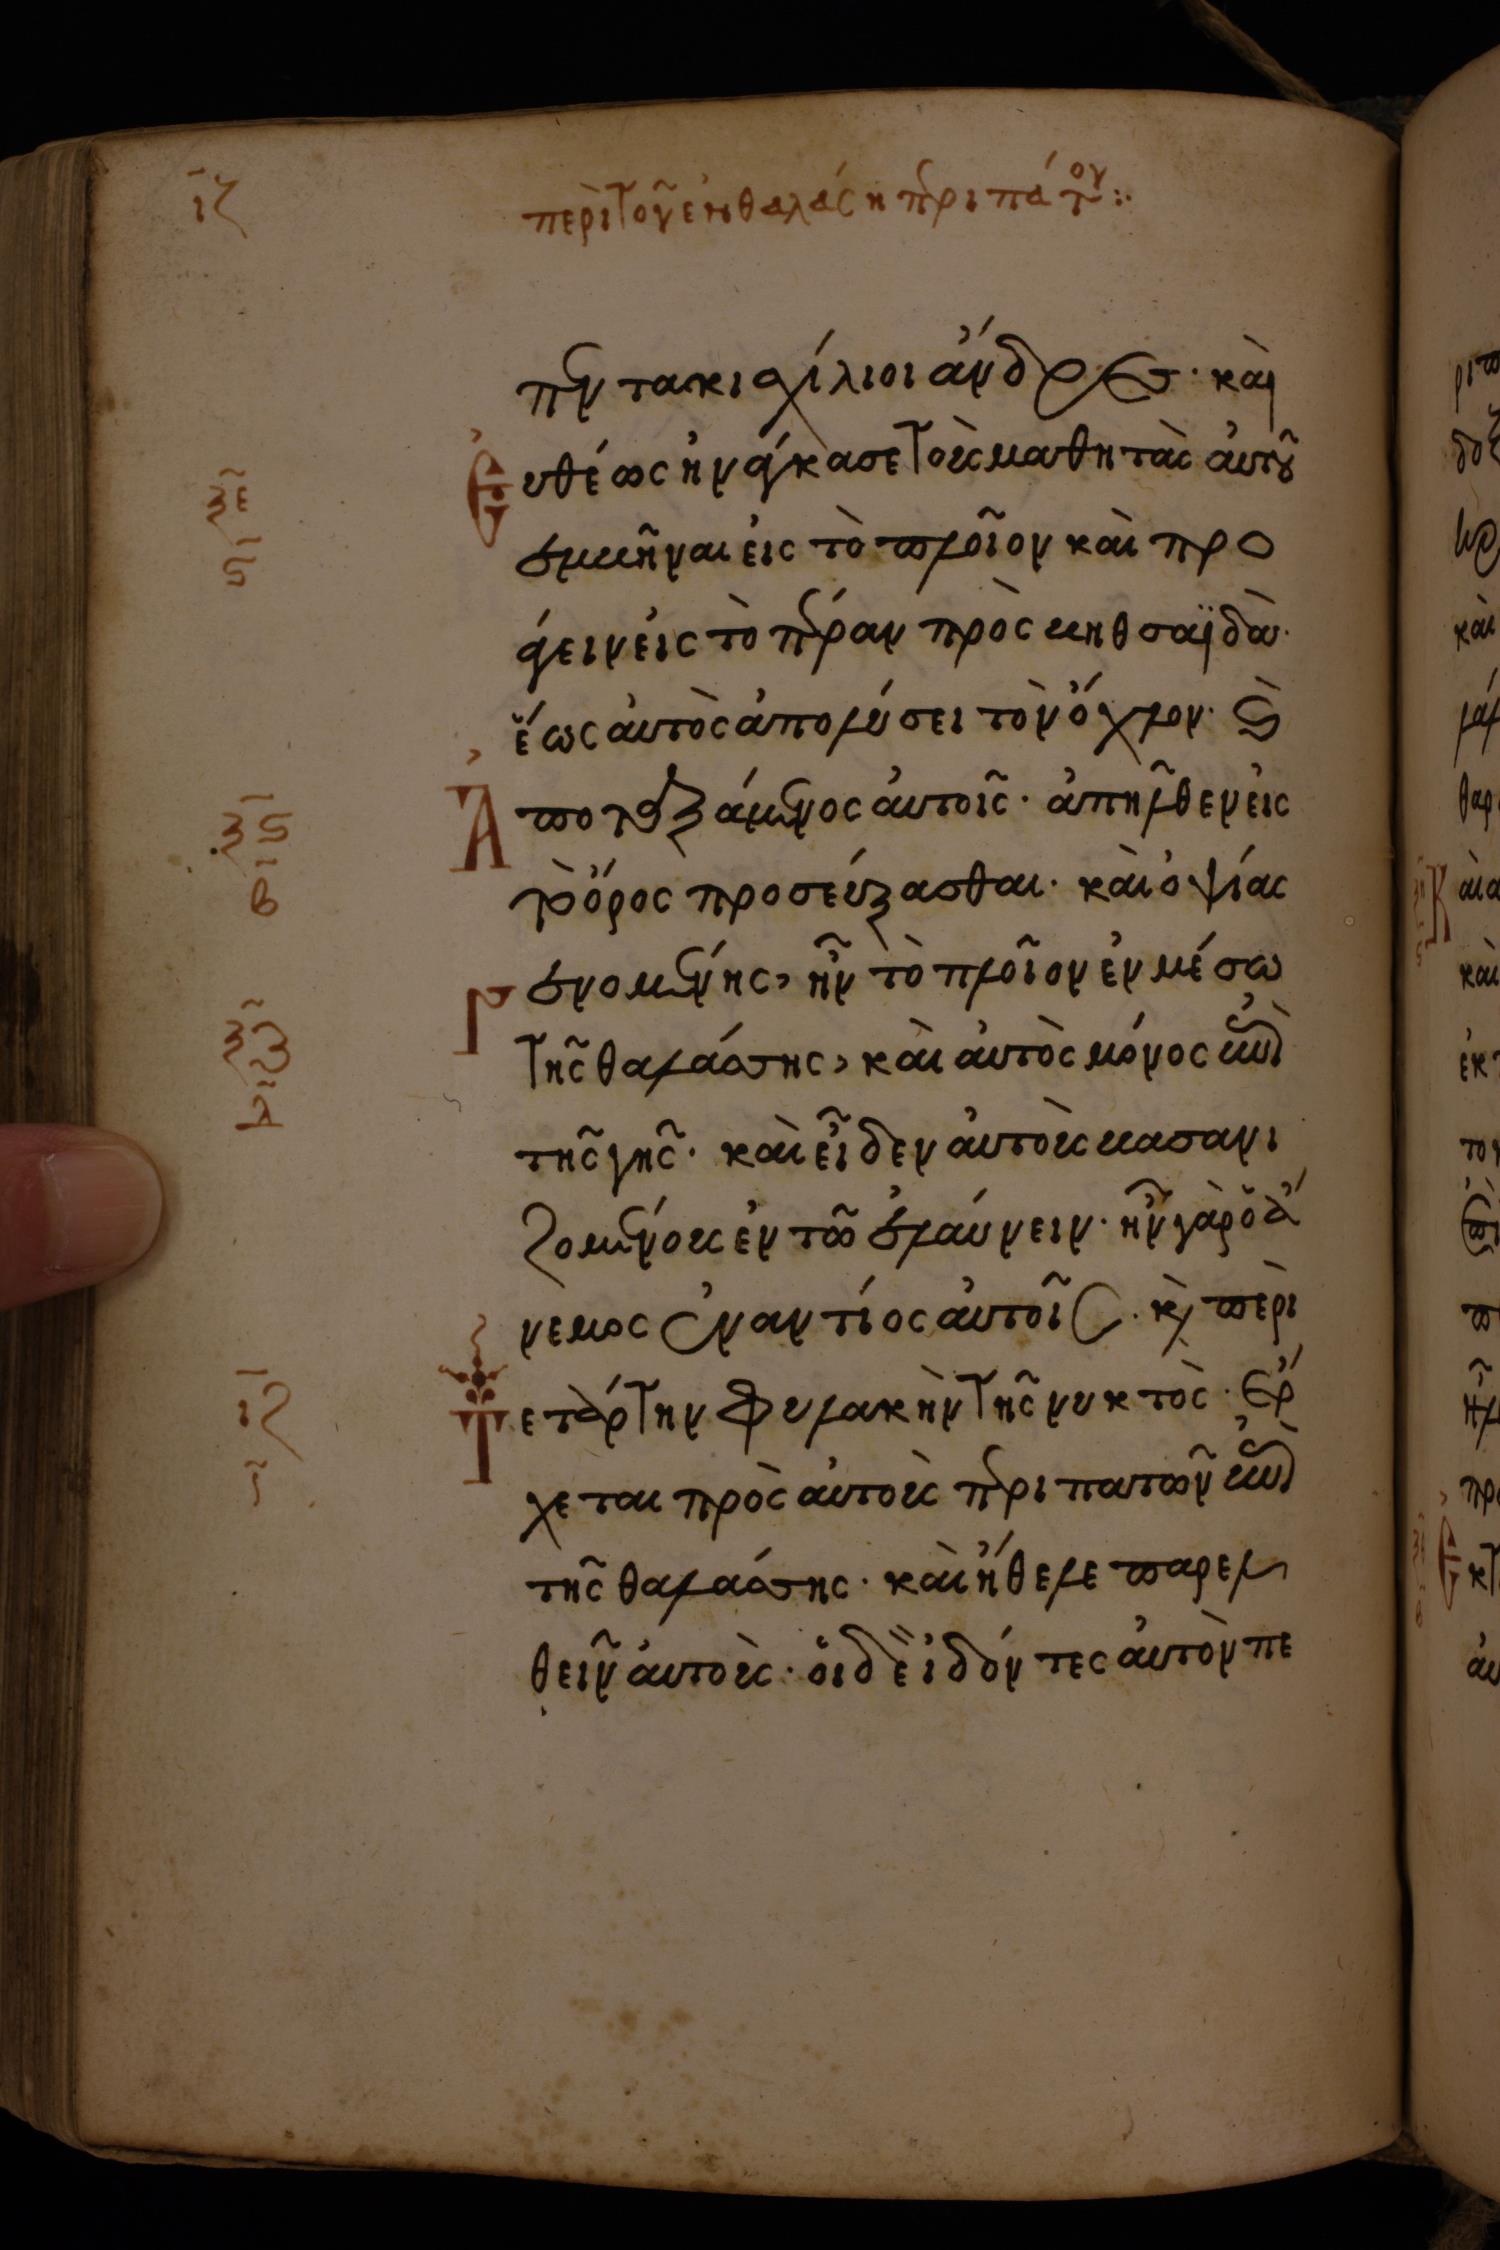 ιζ περὶ τοῦ ἐν θαλάσ η περιπάτου :·
πεντακισχίλιοι ἄνδρες· καὶ
Εὐθέως ἠνάγκασε τοὺς μαθητὰς αὐτοῦ
ξε
ς
ἐμβῆναι εἰς τὸ πλοῖον καὶ προ
άγειν εἰς τὸ πέραν πρὸς βηθσαϊδὰ·
ἕως αὐτὸς ἀπολύσει τὸν ὄχλον· καὶ
ξς
β
Ἀποταξάμενος αὐτοῖς· ἀπῆλθεν εἰς
τὸ ὄρος προσεύξασθαι· καὶ ὀψίας
γενομένης, ἦν τὸ πλοῖον ἐν μέσω
ξζ
δ
τῆς θαλάσσης, καὶ αὐτὸς μόνος ἐπὶ
τῆς γῆς· καὶ εἶδεν αὐτοὺς βασανι
ζομένους ἐν τῶ ἐλαύνειν· ἦν γὰρ ὁ ἄ
νεμος ἐναντίος αὐτοῖς· κὶ περὶ
ιζ
Τετάρτην φυλακὴν τῆς νυκτὸς· ἔρ
χεται πρὸς αὐτοὺς περιπατῶν ἐπὶ
τῆς θαλάσσης· καὶ ἤθελε παρελ
θεῖν αὐτοὺς· οἱ δὲ ἰδόντες αὐτὸν πε